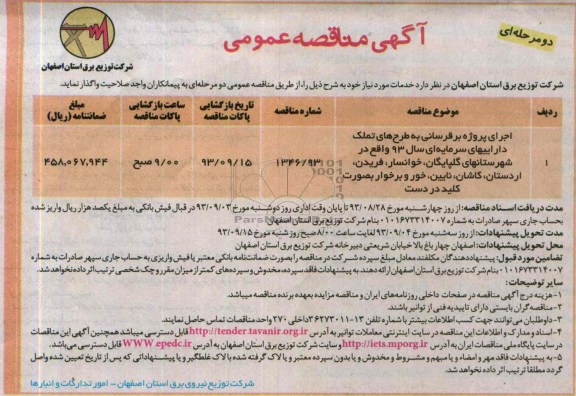 آگهی مناقصه عمومی
دو مرحله‌ای
شرکت توزیع برق استان اصفهان
شرکت توزیع برق استان اصفهان در نظر دارد خدمات مورد نیاز خود به شرح ذیل را، از طریق مناقصه عمومی دو مرحله‌ای به پیمانکاران واجد صلاحیت واگذار نماید.
ردیف
موضوع مناقصه
شماره مناقصه
تاریخ بازگشایی پاکات مناقصه
ساعت بازگشایی پاکات مناقصه
مبلغ ضمانتنامه (ریال)
۱
اجرای پروژه برقرسانی به طرح‌های تملک
دارایی‌های سرمایه‌ای سال ۹۳ واقع در
شهرستانهای گلپایگان، خوانسار، فریدن،
اردستان، کاشان، نایین، خور و برخوار بصورت
کلید در دست
۱۳۴۶/۹۳
۹۳/۰۹/۱۵
۹/۰۰ صبح
۴۵۸,۰۶۷,۹۴۴
مدت دریافت اسناد مناقصه: از روز چهارشنبه مورخ ۹۳/۰۸/۲۸ تا پایان وقت اداری روز دوشنبه مورخ ۹۳/۰۹/۰۳ در قبال فیش بانکی به مبلغ یکصد هزار ریال واریز شده
بحساب جاری سپهر صادرات به شماره ۰۱۰۱۶۷۳۳۱۴۰۰۷ بنام شرکت توزیع برق استان اصفهان
مدت تحویل پیشنهادات: از روز سه‌شنبه مورخ ۹۳/۰۹/۰۴ لغایت ساعت ۸/۰۰ صبح روز شنبه مورخ ۹۳/۰۹/۱۵
محل تحویل پیشنهادات: اصفهان چهارباغ بالا خیابان شریعتی دبیرخانه شرکت توزیع برق استان اصفهان
تضامین مورد قبول: پیشنهاددهندگان مکلفند معادل مبلغ سپرده شرکت در مناقصه را بصورت ضمانتنامه بانکی معتبر یا فیش واریزی به حساب جاری سپهر صادرات به شماره
۰۱۰۱۶۷۳۳۱۴۰۰۷ بنام شرکت توزیع برق استان اصفهان ارائه دهند. به پیشنهادات فاقد سپرده، مخدوش و سپرده‌های کمتر از میزان مقرر و چک شخصی ترتیب اثر داده نخواهد شد.
سایر توضیحات:
۱- هزینه درج آگهی مناقصه در صفحات داخلی روزنامه‌های ایران و مناقصه مزایده بعهده برنده مناقصه میباشد.
۲- مناقصه گران بایستی دارای تاییدیه فنی از توانیر باشند.
۳- داوطلبان می‌توانند جهت کسب اطلاعات بیشتر با شماره تلفن ۱۳-۳۶۲۷۳۰۱۱ داخلی ۲۷۰ واحد مناقصات تماس حاصل نمایند.
۴- اسناد و مدارک و اطلاعات این مناقصه در سایت اینترنتی معاملات توانیر به آدرس http://tender.tavanir.org.ir قابل دسترسی میباشد همچنین آگهی این مناقصات
در سایت پایگاه ملی مناقصات ایران به آدرس http://iets.mporg.ir و سایت شرکت توزیع برق استان اصفهان به آدرس WWW epedc.ir قابل دسترسی می‌باشد.
۵- به پیشنهادات فاقد مهر و امضاء و یا مبهم و مشروط و مخدوش و یا بدون سپرده معتبر و یا لاک گرفته شده بالاک غلط‌گیر و یا پیشنهاداتی که پس از تاریخ تعیین شده واصل
گردد مطلقاً ترتیب اثر داده نخواهد شد.
شرکت توزیع نیروی برق استان اصفهان - امور تدارکات و انبارها